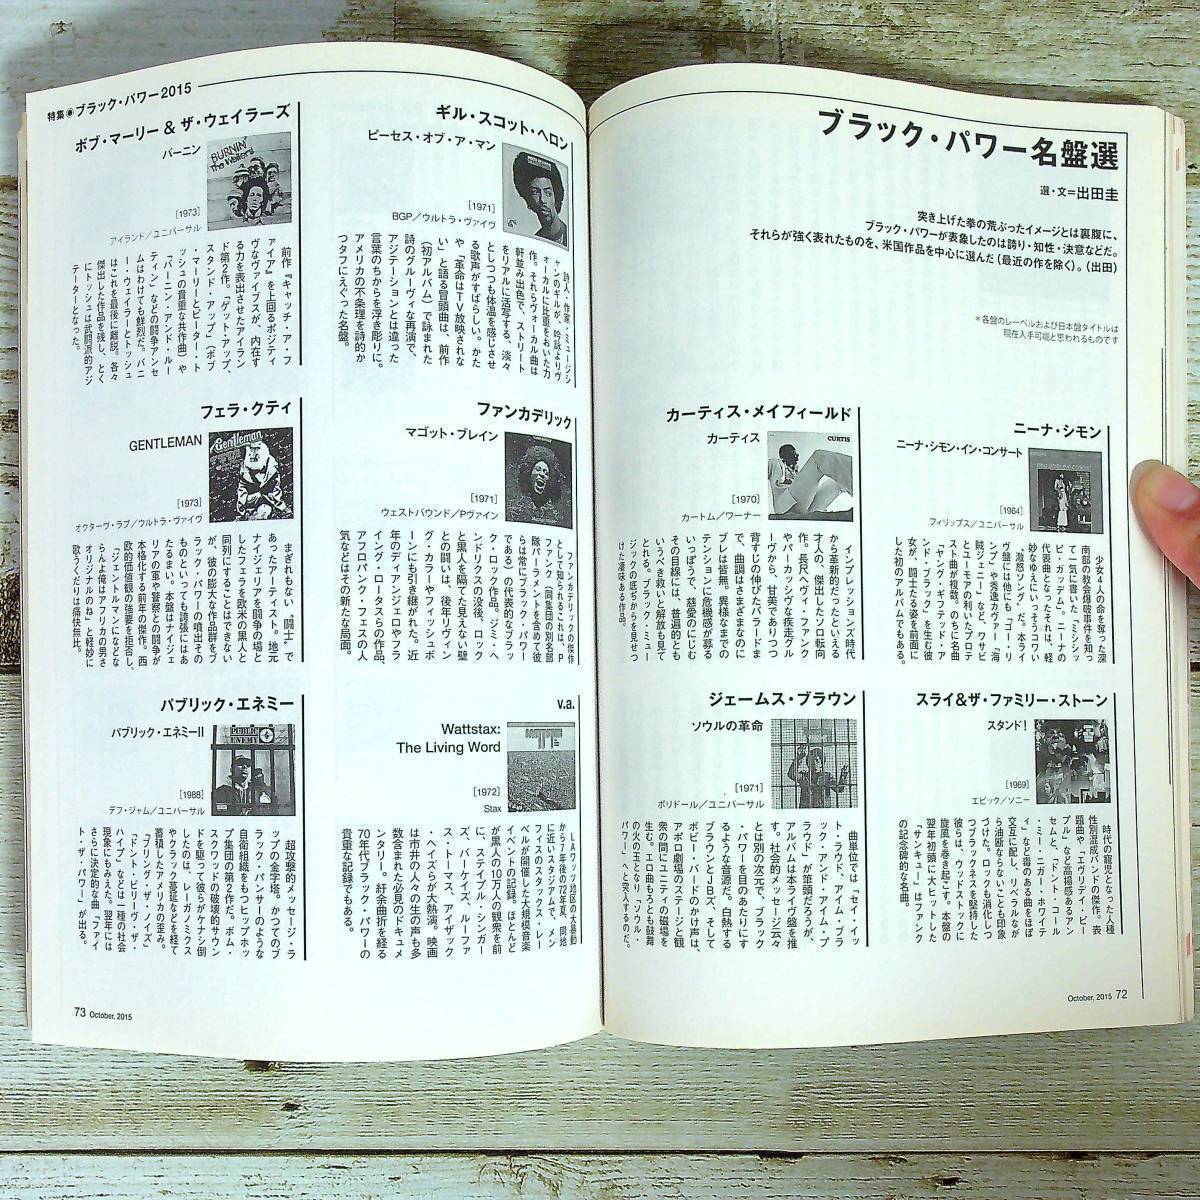 ブラック・パワー名盤選
選・文=出田圭
突き上げた拳の荒ぶったイメージとは裏腹に、
ブラック・パワーが表象したのは誇り・知性・決意などだ。
それらが強く表れたものを、米国作品を中心に選んだ(最近の作を除く)。(出田)
*各盤のレーベルおよび日本盤タイトルは
現在入手可能と思われるものです
ニーナ・シモン
ニーナ・シモン・イン・コンサート
[1964]
フィリップス/ユニバーサル
少女4人の命を奪った深
南部の教会爆破事件を知っ
て一気に書いた「ミシシッ
ピ・ガッデム」。ニーナの
代表曲となったそれは、軽
妙なゆえにいっそうコワい
“激怒ソング”だ。本ライ
ヴ盤には他にも「ゴー・リ
ンプ」や秀逸カヴァー「海
賊ジェニー」など、ワサビ
とユーモアの利いたプロテ
スト曲が複数。のちに名曲
「ヤング・ギフテッド・ア
ンド・ブラック」を生む彼
女が、闘士たる姿を前面に
出した初のアルバムでもある。
カーティス・メイフィールド
カーティス
CURTIS
[1970]
カートム/ワーナー
インプレッションズ時代
から革新的だったシカゴの
才人の、傑出したソロ転向
作。長尺ヘヴィ・ファンク
やパーカッシヴな疾走グル
ーヴから、甘美でありつつ
背すじの伸びたバラードま
で、曲調はさまざまなのに
ブレは皆無。異様なまでの
テンションに危機感が募る
いっぽうで、慈愛のにじむ
その目線には、普遍的とも
いうべき救いと解放も見て
とれる。ブラック・ミュー
ジックの底ぢからを見せつ
けた凄味ある作品。
スライ&ザ・ファミリー・ストーン
スタンド!
[1969]
エピック/ソニー
時代の寵児となった人種
性別混成バンドの傑作。表
題曲や「エヴリデイ・ピー
プル」など高揚感あるアン
セムと、「ドント・コール
・ミー・ニガー・ホワイテ
ィ」など毒のある曲をほぼ
交互に配し、リベラルなが
ら油断ならないことも印象
づけた。ロックも消化しつ
つブラックネスを堅持した
彼らは、ウッドストックに
旋風を巻き起こす。本盤の
翌年初頭に大ヒットした
「サンキュー」はファンク
の記念碑的な名曲。
ジェームス・ブラウン
ソウルの革命
[1971]
ポリドール/ユニバーサル
曲単位では「セイ・イッ
ト・ラウド、アイム・ブラ
ック・アンド・アイム・プ
ラウド」が筆頭だろうが、
アルバムは本ライヴ盤を推
す。社会的メッセージ云々
とは別の次元で、ブラック
・パワーを目のあたりにす
るような音源だ。白熱する
ブラウンとJBズ、そして
ボビー・バードのかけ声は、
アポロ劇場のステージと観
衆の間にユニティの磁場を
生む。エロ曲もろとも鼓舞
の火の玉となり「ソウル・
パワー」へと突入するのだ。
October, 2015 72
特集●ブラック・パワー2015
ギル・スコット・ヘロン
ピーセス・オブ・ア・マン
[1971]
BGP/ウルトラ・ヴァイヴ
詩人・作家・ミュージシ
ャンのギルが、吟詠よりヴ
ォーカルに比重をおいた力
作。それらヴォーカル曲は
軒並み出色で、ストリート
をリアルに活写する、淡々
としつつも体温を感じさせ
る歌声がすばらしい。かた
や「革命はTV放映されな
い」と語る冒頭曲は、前作
(初アルバム)で詠まれた
詩のグルーヴィな再演で、
アジテーションとは違った
言葉のちからを浮き彫りに。
アメリカの不条理を詩的か
つタフにえぐった名盤。
ボブ・マーリー & ザ・ウェイラーズ
バーニン
BURNIN'
The Wailers
[1973]
アイランド/ユニバーサル
前作『キャッチ・ア・フ
ァイア』を上回るポジティ
ヴなヴァイブスが、内在す
る力を表出させたアイラン
ド第2作。「ゲット・アップ、
スタンド・アップ」(ボブ
・マーリーとピーター・ト
ッシュの貴重な共作曲)や
「バーニン・アンド・ルー
ティン」などの闘争アンセ
ムはわけても鮮烈だ。バニ
ー・ウェイラーとトッシュ
はこれを最後に離脱。各々
傑出した作品を残し、とく
にトッシュは武闘派的アジ
テーターとなった。
ファンカデリック
マゴット・ブレイン
[1971]
ウェストバウンド/Pヴァイン
ファンカデリックの傑作
として知られるこれは、P
ファンク(同集団の別名部
隊パーラメントを含めて彼
らは常にブラック・パワー
である)の代表的なブラッ
ク・ロック作品。ジミ・ヘ
ンドリクスの没後、ロック
と黒人を隔てた見えない壁
との闘いは、後年リヴィン
グ・カラーやフィッシュボ
ーンにも引き継がれた。近
年のディアンジェロやフラ
イング・ロータスらの作品、
アフロパンク・フェスの人
気などはその新たな局面。
フェラ・クティ
GENTLEMAN
Gentleman
[1973]
オクターヴ・ラブ/ウルトラ・ヴァイヴ
まぎれもない“闘士”で
あったアーティスト。地元
ナイジェリアを闘争の場と
したフェラを欧米の黒人と
同列にすることはできない
が、彼の膨大な作品群をブ
ラック・パワーの噴出その
ものといっても誇張にはあ
たるまい。本盤はナイジェ
リアの軍や警察との闘争が
本格化する前年の傑作。西
欧的価値観の強要を拒否し、
「ジェントルマンになどな
らんよ俺はアフリカの男さ
オリジナルのね」と軽妙に
歌うくだりは痛快無比。
v.a.
Wattstax:
The Living Word
[1972]
Stax
LAワッツ地区の大暴動
から7年後の72年夏、同地
に近いスタジアムで、メン
フィスのスタックス・レー
ベルが開催した大規模音楽
イベントの記録。ほとんど
が黒人の10万人の観衆を前
に、ステイプル・シンガー
ズ、バーケイズ、ルーファ
ス・トーマス、アイザック
・ヘイズらが大熱演。映画
は市井の人々の生の声も多
数含まれた必見のドキュメ
ンタリー。紆余曲折を経る
70年代ブラック・パワーの
貴重な記録でもある。
パブリック・エネミー
パブリック・エネミーII
PUBLIC
ENEMY
[1988]
デフ・ジャム/ユニバーサル
超攻撃的メッセージ・ラ
ップの金字塔。かつてのブ
ラック・パンサーのような
自衛組織をもつヒップホッ
プ集団の第2作だ。ボム・
スクワッドの破壊的サウン
ドを駆って彼らがケナシ倒
したのは、レーガノミクス
やクラック蔓延などを経て
蓄積したアメリカの歪み。
「ブリング・ザ・ノイズ」
「ドント・ビリーヴ・ザ・
ハイプ」などは一種の社会
現象にもみえた。翌年には
さらに決定的な曲「ファイ
ト・ザ・パワー」が出る。
73 October, 2015